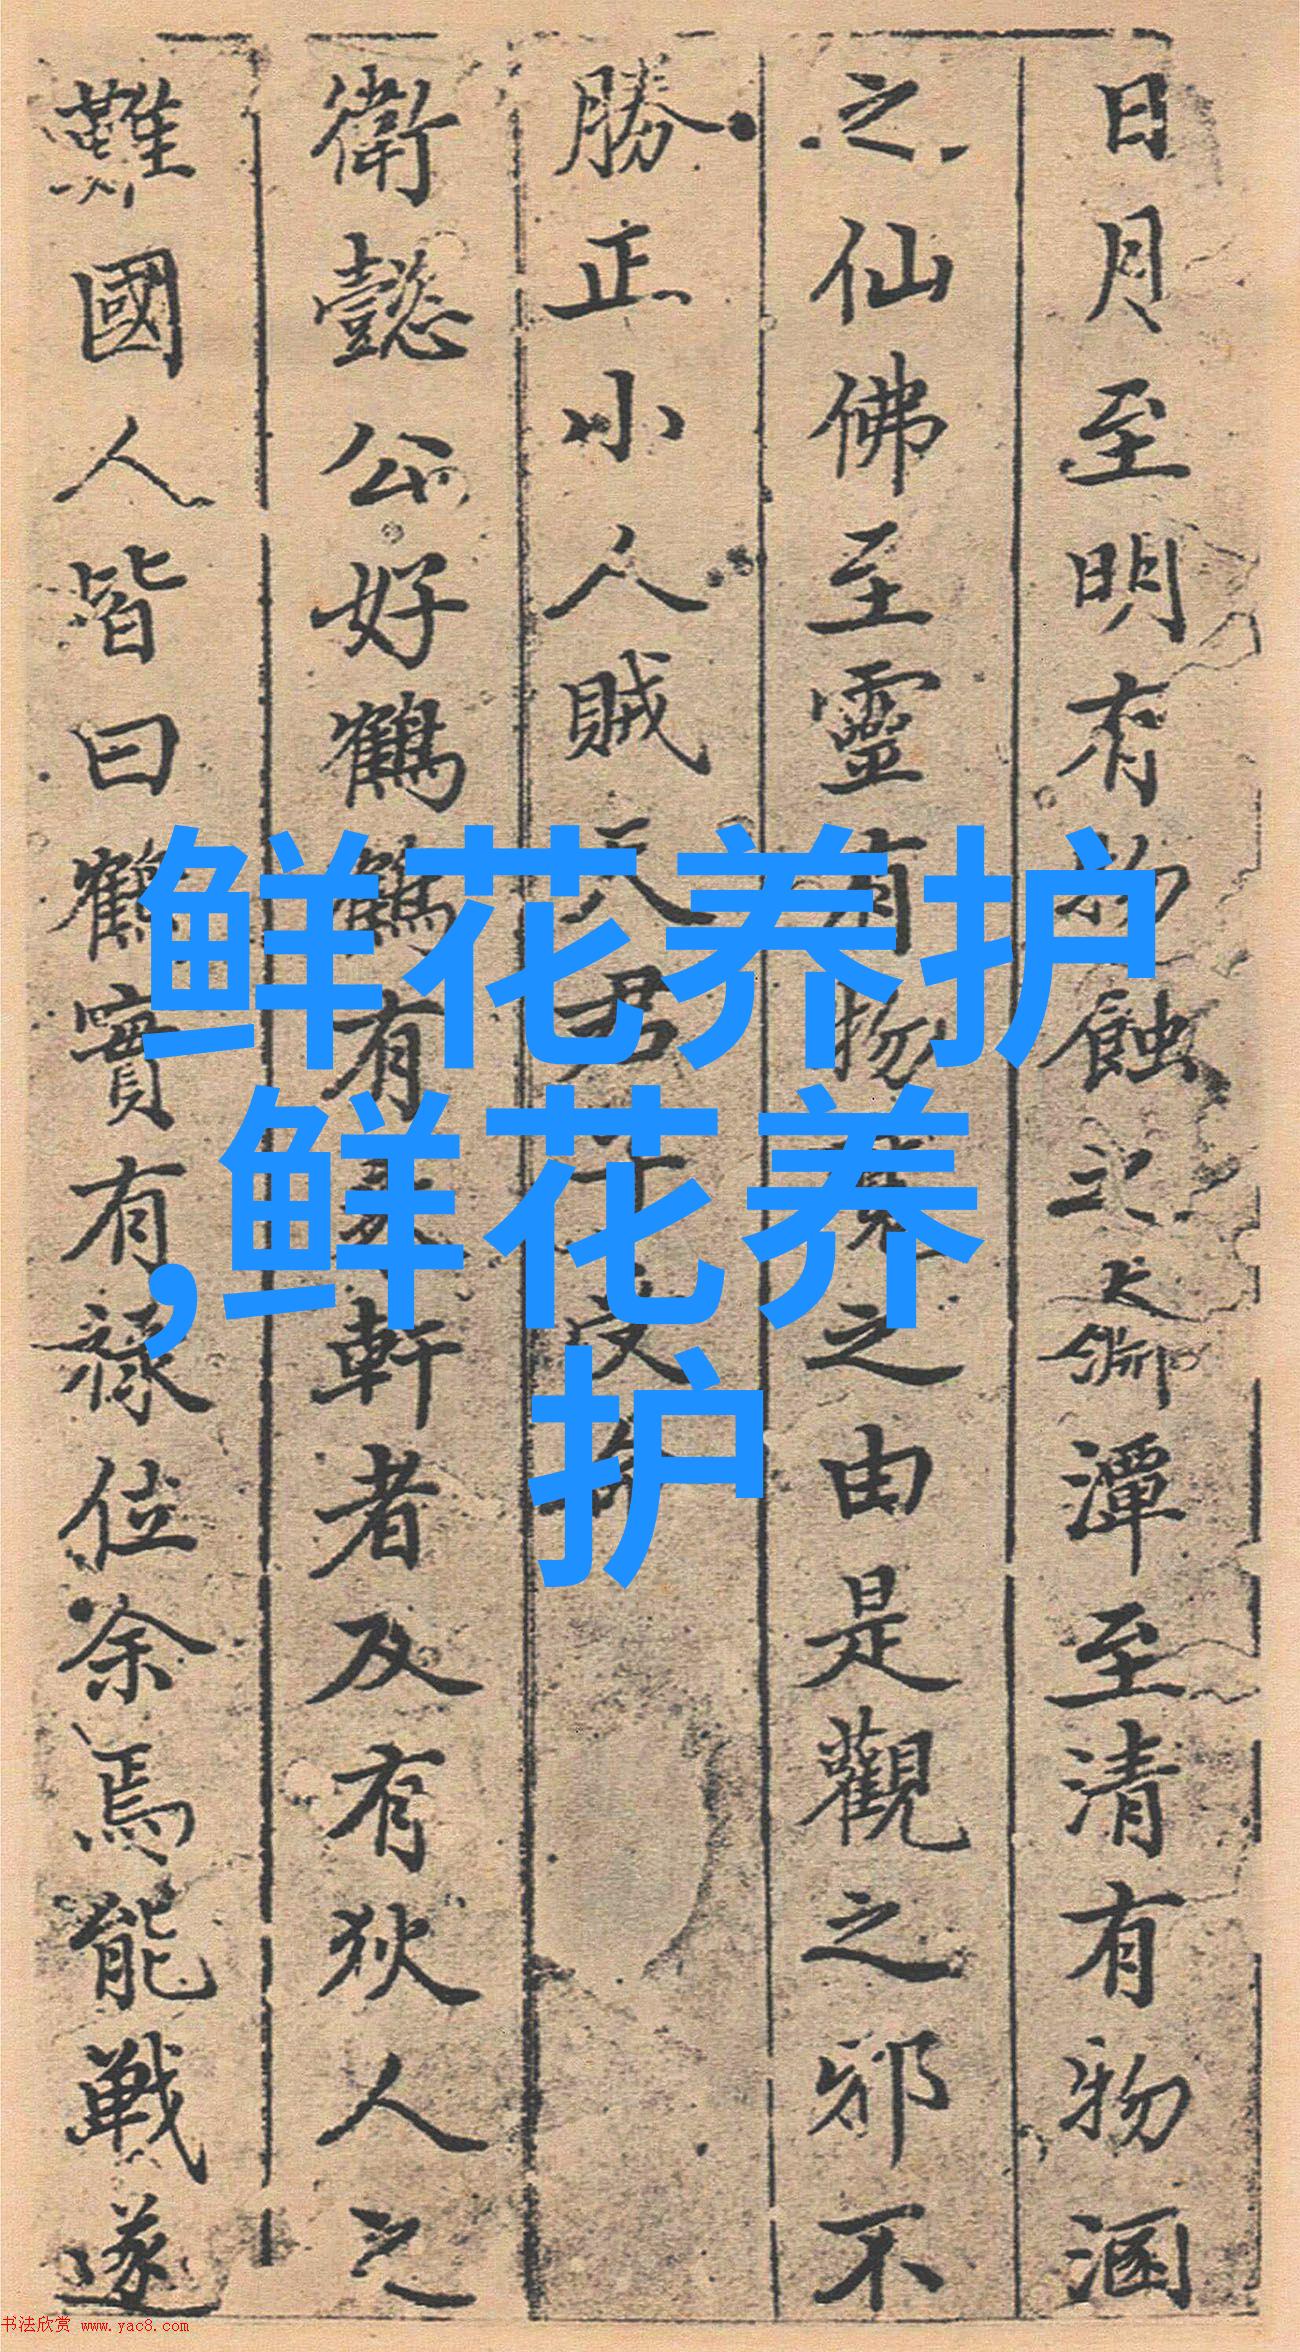 日月至明有物蝕之大淵潭至清有物涵
之仙佛至靈有物之由是觀之邪不
勝正小人賊君子
衛懿公好鶴鶴有軒者及有狄人之
難國人皆曰鶴實有祿位余焉能戰遂
鲜花养护
,鲜花养
护
书法欣赏 www.yac8.com